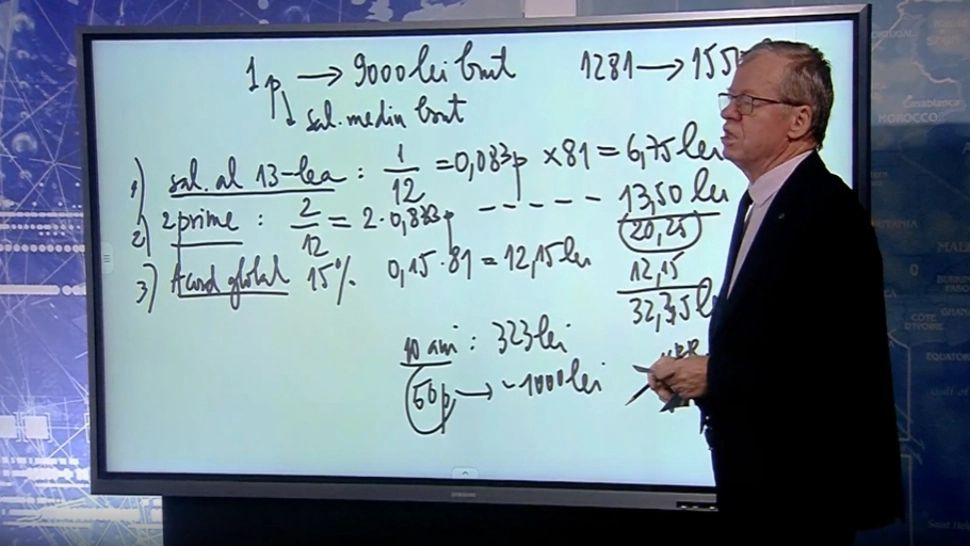 1p → 9000 lei brut 1281 → 155
sal. mediu brut
1) sal. al 13-lea : 1/12 = 0,083p × 81 = 6,75 lei
2) 2 prime : 2/12 = 2 · 0,833p ----- 13,50 lei
20,25
3) Acord global 15% 0,15 · 81 = 12,15 lei 12,15
32,35 l
10 ani : 323 lei
50p → ~1000 lei
SAMSUNG
Casablanca
MOROCCO
CÔTE D'IVOIRE
EQUATOR